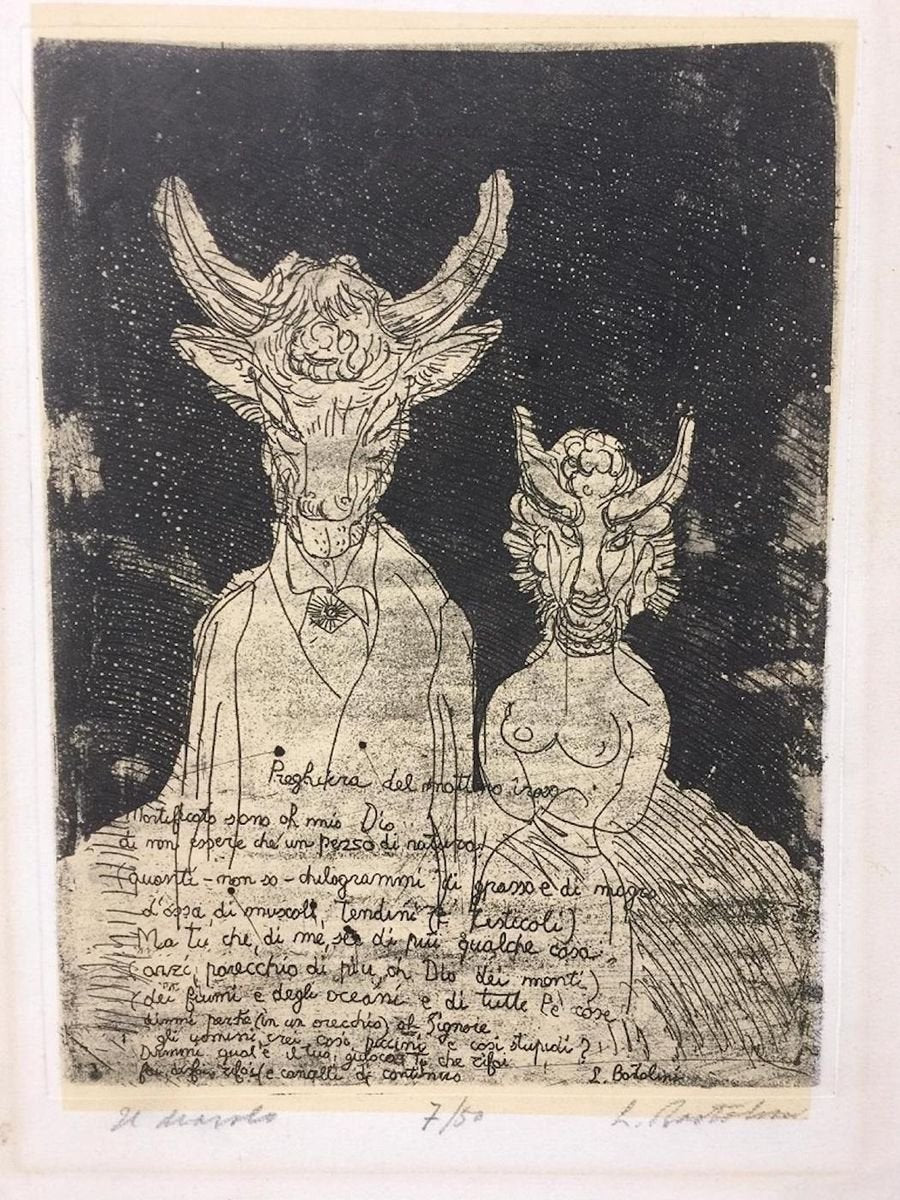 Preghiera del mattino
Mortificato sono oh mio Dio
di non essere che un pezzo di natura!
quanti - non so - chilogrammi di grasso e di magro
d'ossa, di muscoli, tendini (e testicoli)
Ma tu, che, di me, sei di più qualche cosa,
(anzi, parecchio di più, oh Dio dei monti)
(dei fiumi e degli oceani e di tutte le cose
dimmi perché (in un orecchio) oh Signore
gli uomini crei così piccini e così stupidi?
Dimmi qual'è il tuo giuoco: Tu che rifai
e cavalli di continuo
L. Bartolini
Il diavolo 7/50 L. Bartolini